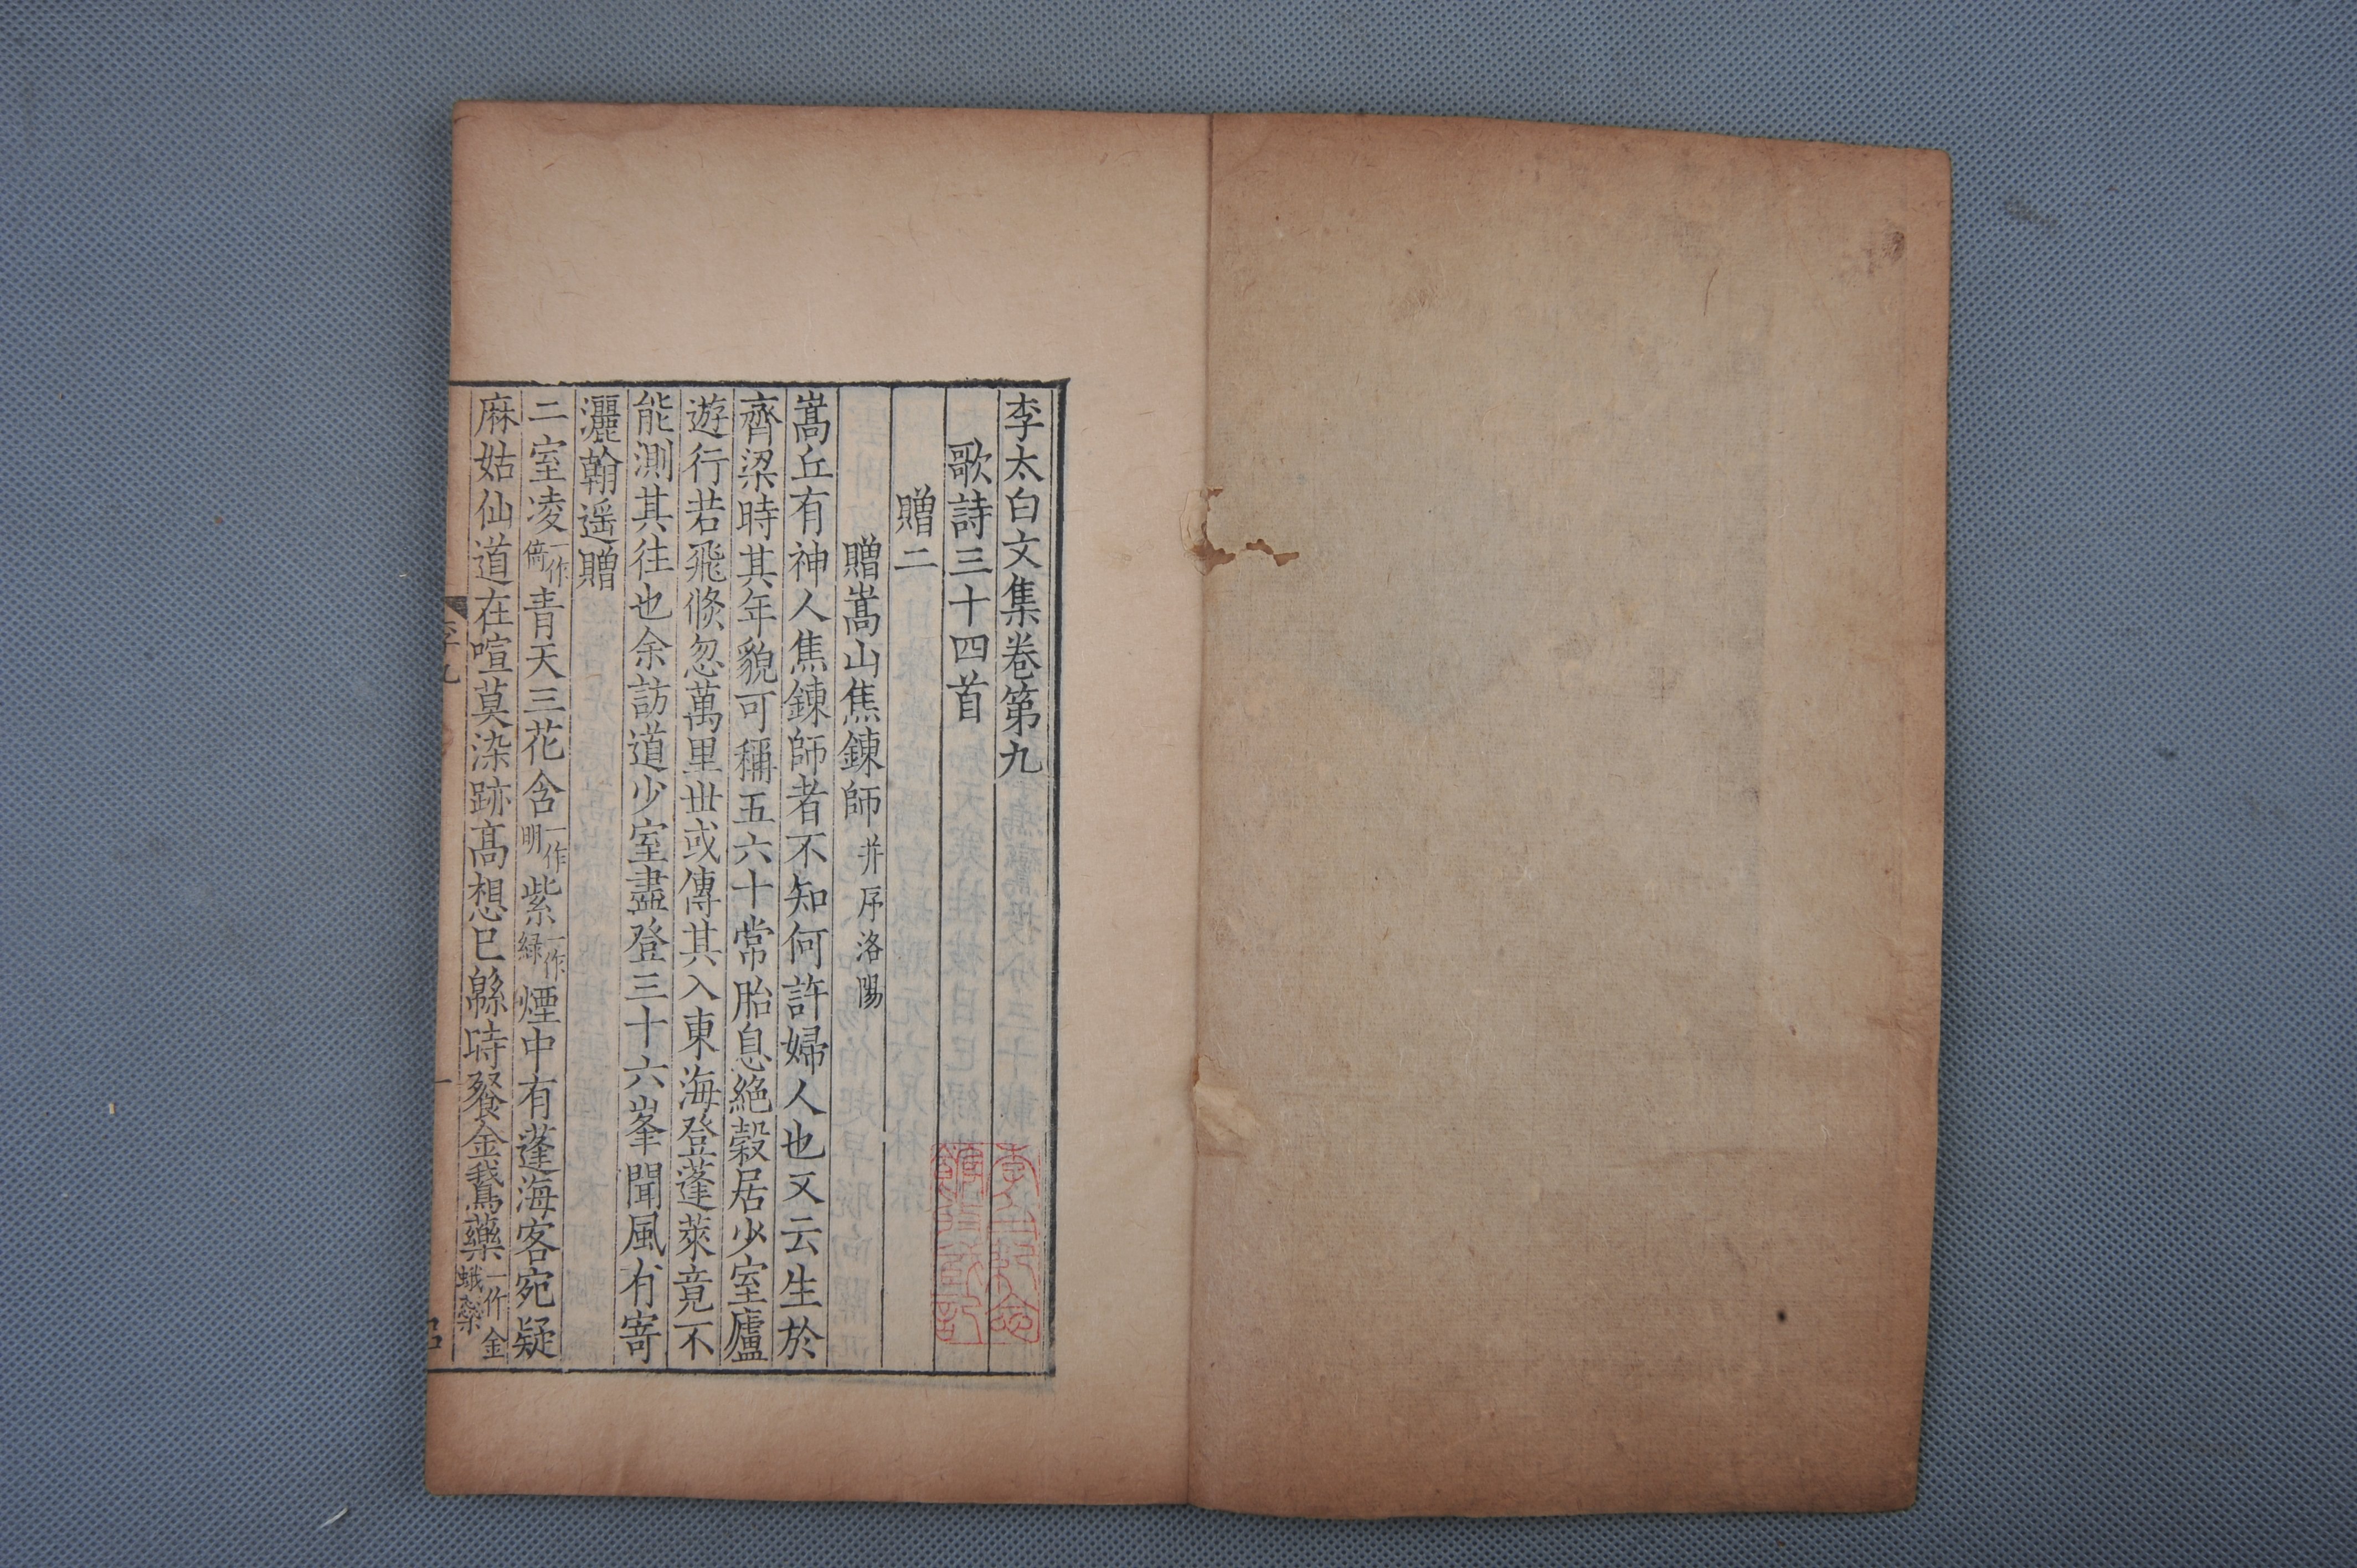 李太白文集卷第九
歌詩三十四首
贈二
贈嵩山焦鍊師并序洛陽
嵩丘有神人焦鍊師者不知何許婦人也又云生於
齊梁時其年貌可稱五六十常胎息絶穀居少室廬
遊行若飛倐忽萬里世或傳其入東海登蓬萊竟不
能測其往也余訪道少室盡登三十六峯聞風有寄
灑翰遥贈
二室凌一作倚青天三花含一作明紫一作緑煙中有蓬海客宛疑
麻姑仙道在喧莫染跡髙想已緜時飡金鵝藥一作金蛾蘂
李九
一